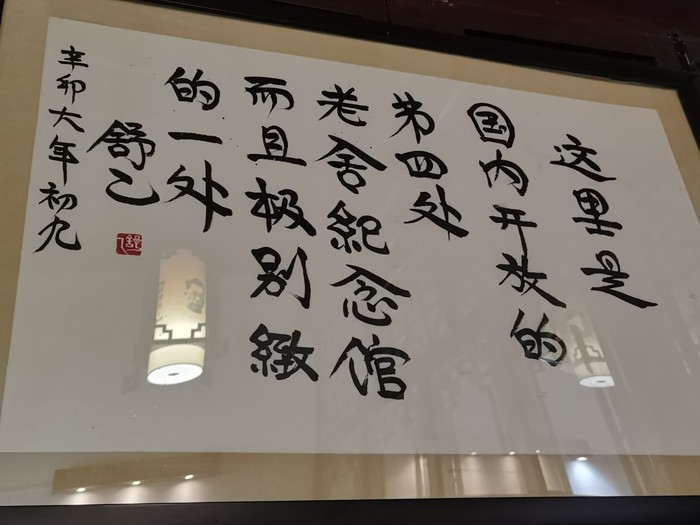 这里是
国内开放的
第四处
老舍紀念馆
而且极别緻
的一处
舒乙
辛卯大年初九